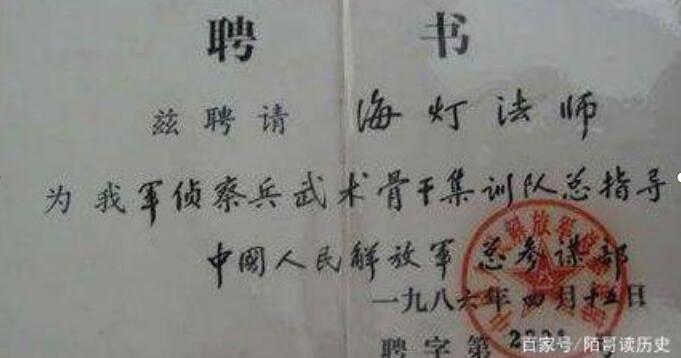 聘 书
兹聘请 海灯法师
为我军侦察兵武术骨干集训队总指导
中國人民解放軍 总参谋部
一九八六年四月十五日
聘字第
百家号/陌哥读历史